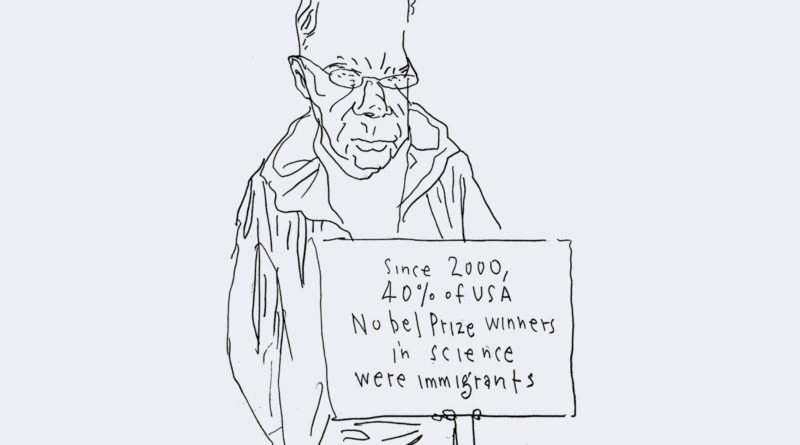 Since 2000,
40% of USA
Nobel Prize winners
in science
were immigrants